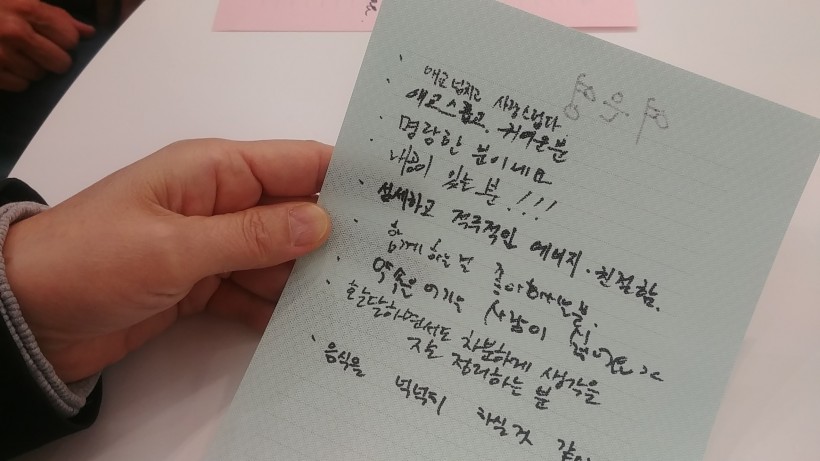 애교 넘치고 사랑스럽다
애교스럽고, 귀여운분
명랑한 분이네요
내공이 있는 분!!!
섬세하고 적극적인 에너지·친절함.
함께하는 걸 좋아하시는분.
약속을 어기는 사람이 싫어요><
호탕달하면서도 차분하게 생각을
잘 정리하는 분
음식을 넉넉히 하실 것